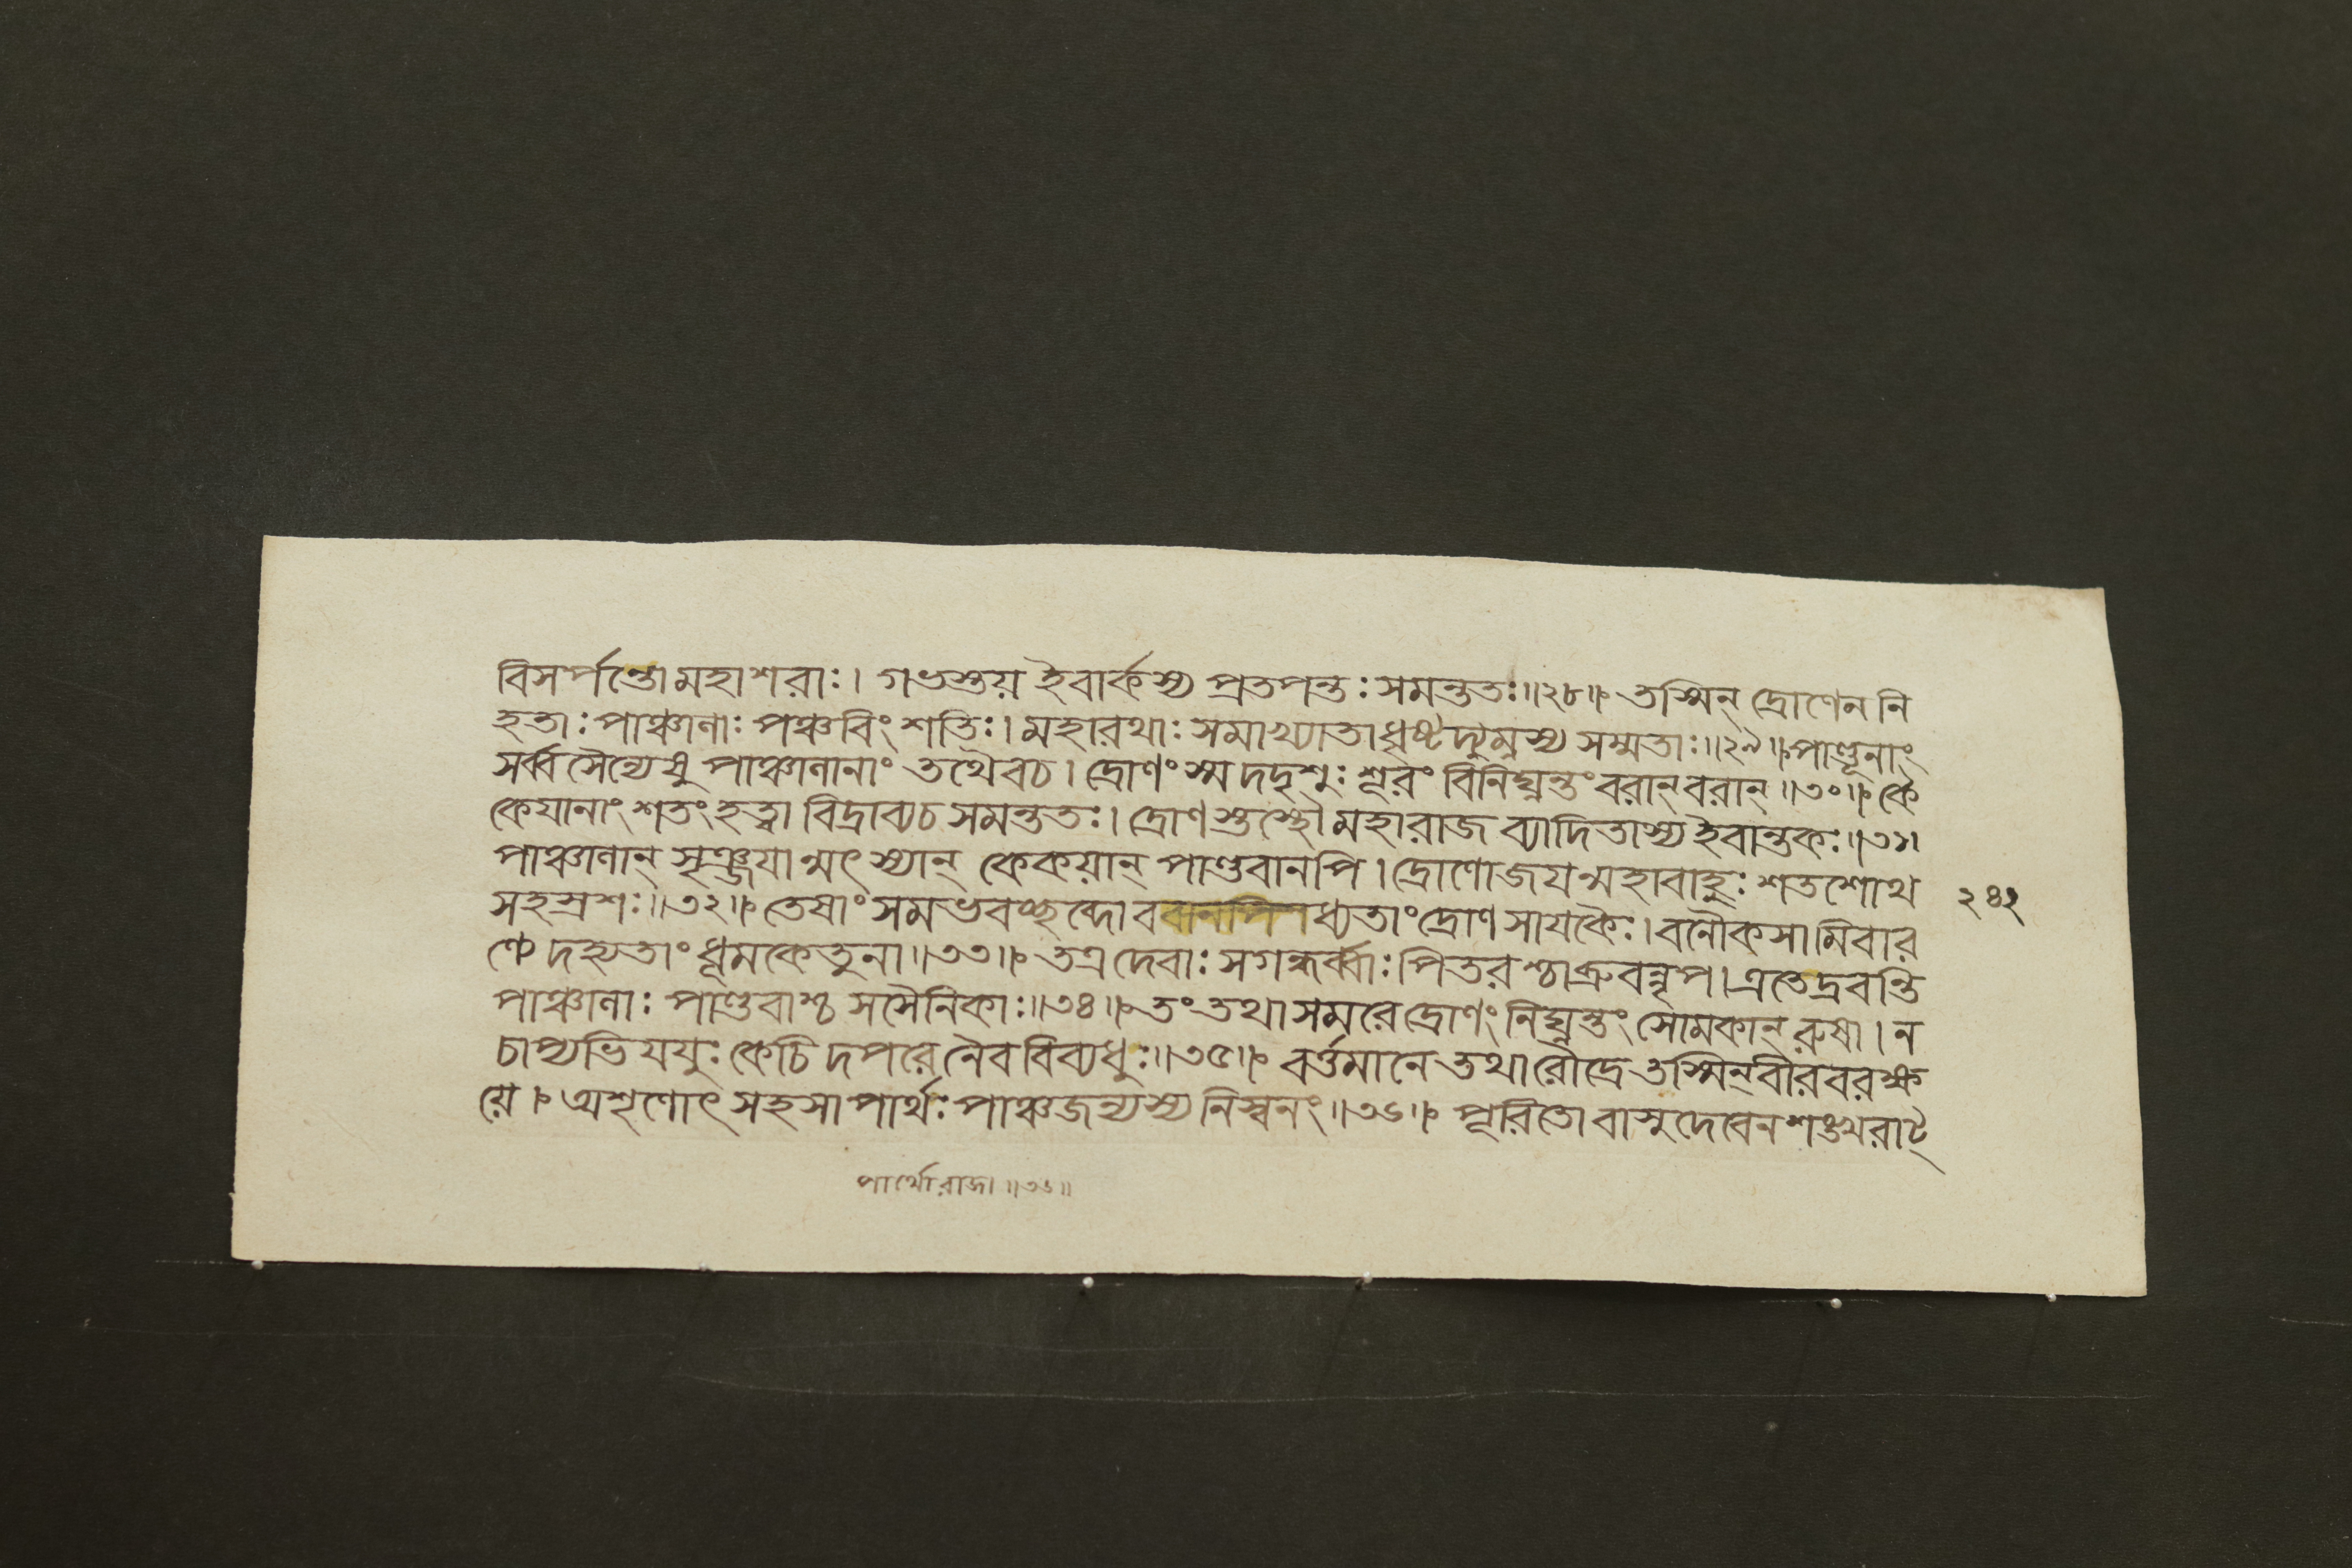 বিসর্পন্তোমহাশরাঃ। গভস্তয় ইবার্কস্য প্রতপন্তঃ সমন্ততঃ॥২৮॥ তস্মিন্ দ্রোণেন নি
হতাঃ পাঞ্চালাঃ পঞ্চবিংশতিঃ। মহারথাঃ সমাখ্যাতাধৃষ্টদ্যুম্নস্য সম্মতাঃ॥২৯॥ পাণ্ডূনাং
সর্ব্বসৈন্যেষু পাঞ্চালানাং তথৈবচ। দ্রোণং স্ম দদৃশুঃ শূরং বিনিঘ্নন্তং বরান্ বরান্॥৩০॥ কৈ
কেয়ানাং শতং হত্বা বিদ্রাব্যচ সমন্ততঃ। দ্রোণস্তস্থৌ মহারাজ ব্যাদিতাস্য ইবান্তকঃ॥৩১।
পাঞ্চালান্ সৃঞ্জয়ান্মৎস্যান্ কেকয়ান্ পাণ্ডবানপি। দ্রোণোজয়ন্মহাবাহুঃ শতশোথ
সহস্রশঃ॥৩২॥ তেষাং সমভবচ্ছব্দোব ধ্যতাংদ্রোণসায়কৈঃ। বনৌকসামিবার
ণ্যে দহ্যতাং ধূমকেতুনা॥৩৩॥ তত্র দেবাঃ সগন্ধর্ব্বাঃ পিতরশ্চাব্রুবন্নৃপ। এতেদ্রবন্তি
পাঞ্চালাঃ পাণ্ডবাশ্চ সসৈনিকাঃ॥৩৪॥ তং তথা সমরে দ্রোণং নিঘ্নন্তং সোমকান্ রুষা। ন
চাপ্যভিযযুঃ কেচিদপরে নৈব বিব্যধুঃ॥৩৫॥ বর্ত্তমানে তথা রৌদ্রে তস্মিন্ বীরবরক্ষ
য়ে। অশৃণোৎ সহসা পার্থঃ পাঞ্চজন্যস্য নিস্বনং॥৩৬॥ পূরিতো বাসুদেবেন শঙ্খরাট্
২৪২
পার্থোরাজা॥৩৬॥